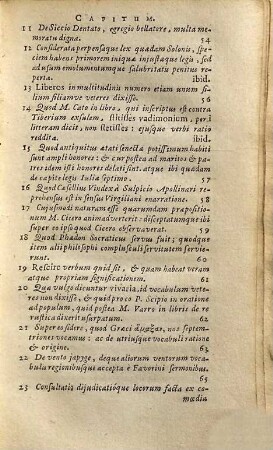 CAPITUM.
11 De Siccio Dentato, egregio bellatore, multa me
moratu digna. 54
12 Considerata perpensaque lex quædam Solonis, spe
ciem habens primorem iniquæ iniustæque legis, sed
ad usum emolumentumque salubritatis penitus re
perta. ibid.
13 Liberos in multitudinis numero etiam unum fi
lium filiamve veteres dixisse. 56
14 Quod M. Cato in libro, qui inscriptus est contra
Tiberium exulem, stitisses vadimonium, per i
litteram dicit, non stetisses: eiusque verbi ratio
reddita. ibid.
15 Quod antiquitus ætati senectæ potissimum habiti
sunt ampli honores: & cur postea ad maritos & pa
tres idem isti honores delati sint. atque ibi quædam
de capite legis Iuliæ septimo. 57
16 Quod Cæsellius Vindex à Sulpicio Apollinari re
prehensus est in sensus Virgiliani enarratione. 58
17 Cuiusmodi naturam esse quarundam præpositio
num M. Cicero animadverterit: disceptatumque ibi
super eo ipso quod Cicero observaverat. 59
18 Quod Phædon Socraticus servus fuit; quodque
item alii philosophi complusculi servitutem servie
runt. 60
19 Rescire verbum quid sit, & quam habeat veram
atque propriam significationem. 61
20 Quæ vulgo dicuntur vivaria, id vocabulum vete
res non dixisse, & quid pro eo P. Scipio in oratione
ad populum, quid postea M. Varro in libris de re
rustica dixerit usurpatum. 62
21 Super eo sidere, quod Græci ἅμαξαν, nos septem
triones vocamus: ac de utriusque vocabuli ratione
& origine. 63
22 De vento iapyge, deque aliorum ventorum vocab
ulis regionibusque accepta è Favorini sermonibus.
65
23 Consultatio diiudicatióque locorum facta ex co
mœdia